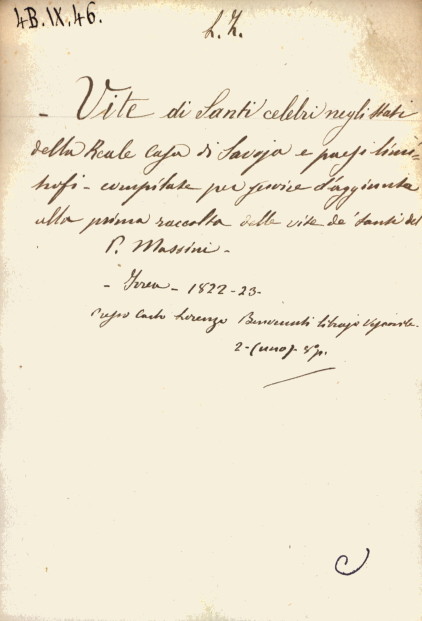 4B.IX.46.
L. Z.
- Vite di Santi celebri negli Stati
della Reale Casa di Savoja e paesi limi=
trofi - compilate per servire d'aggiunta
alla prima raccolta delle vite de' Santi del
P. Massini -
- Ivrea - 1822-23-
Presso Carlo Lorenzo Benvenuti Librajo
2- 8º.